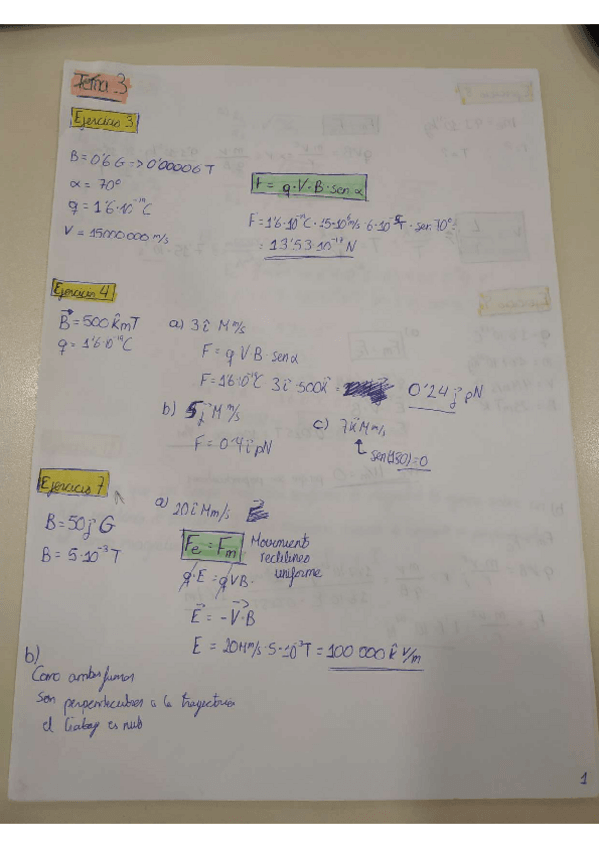 Tema 3
Ejercicio 3
B = 0'6 G => 0'00006 T
α = 70º
q = 1'6·10⁻¹⁹ C
V = 15000000 m/s
F = q·V·B·sen α
F = 1'6·10⁻¹⁹C · 15·10⁶m/s · 6·10⁻⁵T · sen 70º =
= 13'53·10⁻¹⁷ N
Ejercicio 4
B⃗ = 500 k̂ mT
q = 1'6·10⁻¹⁹C
a) 3î Mm/s
F = q V B · sen α
F = 1'6·10⁻¹⁹C 3î · 500k̂ = 0'24 ĵ pN
b) 5ĵ Mm/s
F = 0'4î pN
c) 7k̂ Mm/s
sen(180) = 0
Ejercicio 7
B = 50ĵ G
B = 5·10⁻³ T
a) 20î Mm/s
Fe = Fm
Movimiento
rectilíneo
uniforme
q·E = qVB·
E⃗ = -V⃗·B
E = 20Mm/s · 5·10⁻³T = 100 000 k̂ V/m
b)
Como ambas fuerzas
son perpendiculares a la trayectoria
el trabajo es nulo
1